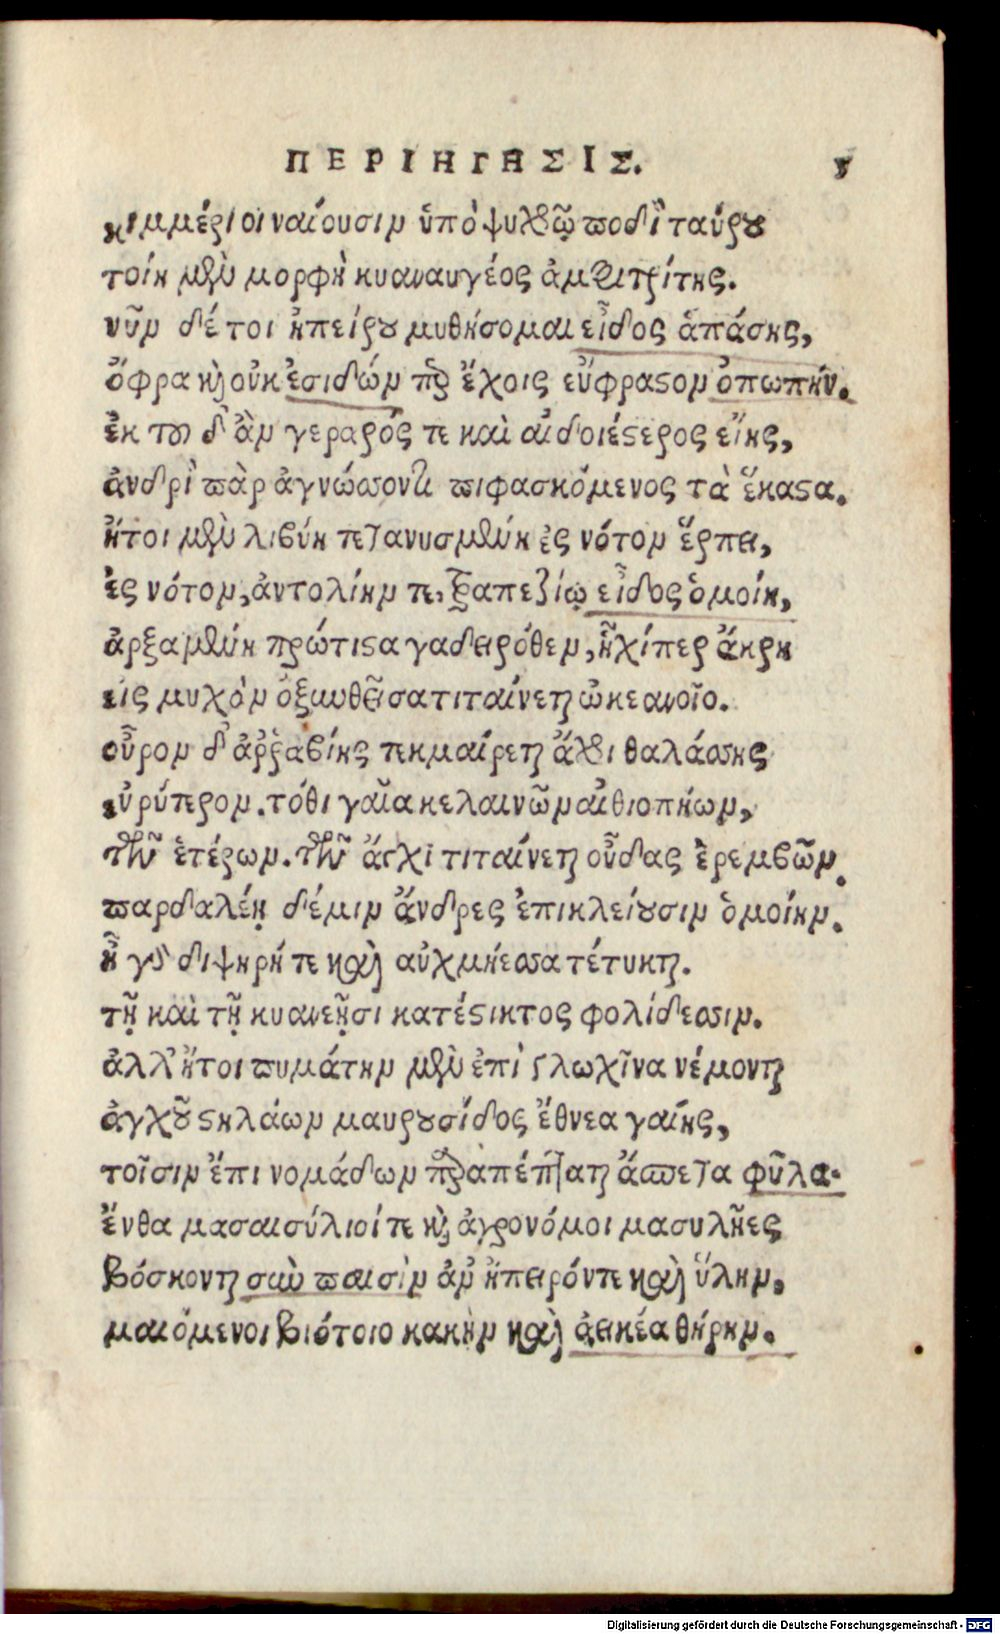 ΠΕΡΙΗΓΗΣΙΣ. 5
κιμμέριοι ναίουσιν ὑπὸ ψυχρῷ ποδὶ ταύρου
τοίη μὲν μορφὴ κυαναυγέος ἀμφιτρίτης.
νῦν δέ τοι ἠπείρου μυθήσομαι εἶδος ἁπάσης,
ὄφρα καὶ οὐκ ἐσιδών περ ἔχοις εὔφραστον ὀπωπήν.
ἐκ του δ' ἂν γεραρός τε καὶ αἰδοιέστερος εἴης,
ἀνδρὶ παρ ἀγνώσσοντι πιφασκόμενος τὰ ἕκαστα.
ἤτοι μὲν λιβύη πετανυσμένη ἐς νότον ἕρπει,
ἐς νότον, ἀντολίην τε, τραπεζίῳ εἶδος ὁμοίη,
ἀρξαμένη πρώτιστα γαδειρόθεν, ἧχίπερ ἄκρη
εἰς μυχὸν ὀξυνθεῖσα τιταίνεται ὠκεανοῖο.
οὖρον δ' ἀῤῥαβίης τεκμαίρεται ἄγχι θαλάσσης
εὐρύτερον. τόθι γαῖα κελαινῶν αἰθιοπήων,
τῶν ἑτέρων. τῶν ἄγχι τιταίνεται οὖδας ἐρεμβῶν.
παρδαλέῃ δέ μιν ἄνδρες ἐπικλείουσιν ὁμοίην.
ἦ γὰρ διψηρή τε καὶ αὐχμήεσσα τέτυκται.
τῇ καὶ τῇ κυανεῇσι κατέστικτος φολίδεσσιν.
ἀλλ' ἤτοι πυμάτην μὲν ἐπὶ γλωχῖνα νέμονται
ἀγχοῦ στηλάων μαυρουσίδος ἔθνεα γαίης,
τοῖσιν ἔπι νομάδων παραπέπταται ἄσπετα φῦλα.
ἔνθα μασαισύλιοί τε καὶ ἀγρονόμοι μασυλῆες
βόσκονται σὺν παισὶν ἀν ἤπειρόν τε καὶ ὕλην,
μαιόμενοι βιότοιο κακὴν καὶ ἀεικέα θήρην.
Digitalisierung gefördert durch die Deutsche Forschungsgemeinschaft - DFG